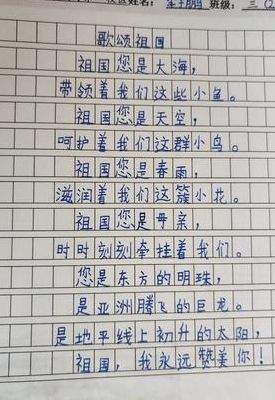 校区姓名： 鹏 班级：三
歌颂祖国
祖国您是大海，
带领着我们这些小鱼。
祖国您是天空，
呵护着我们这群小鸟。
祖国您是春雨，
滋润着我们这簇小花。
祖国您是母亲，
时时刻刻牵挂着我们。
您是东方的明珠，
是亚洲腾飞的巨龙。
是地平线上初升的太阳，
祖国，我永远赞美你！